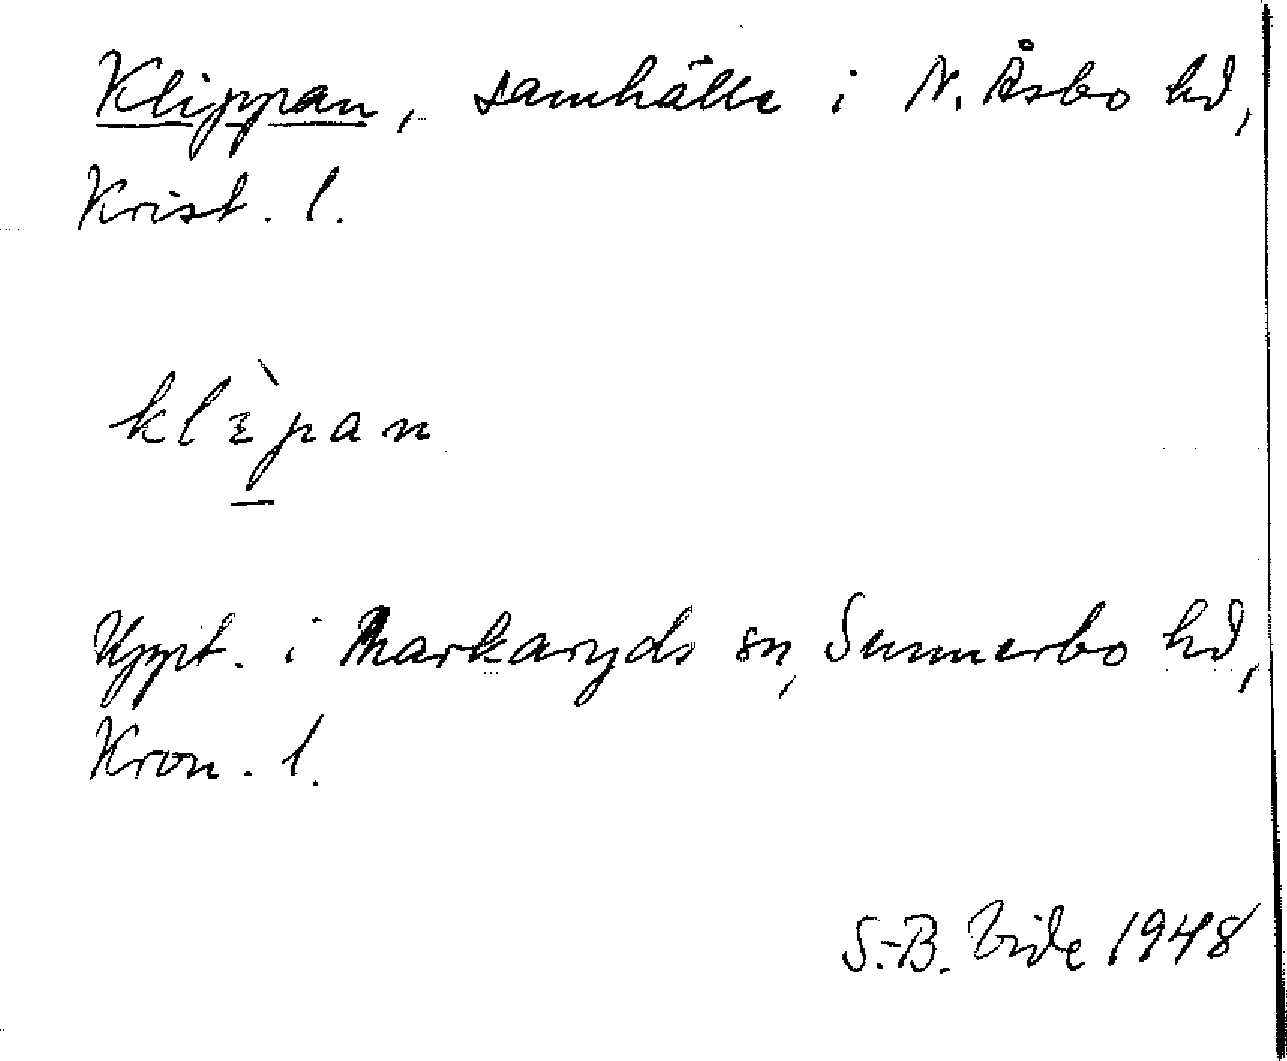 Klippan, samhälle i N. Åsbo hd,
Krist. l.
klɪ̀pan
Uppt. i Markaryds sn, Sunnerbo hd,
Kron. l.
S.-B. Vide 1948